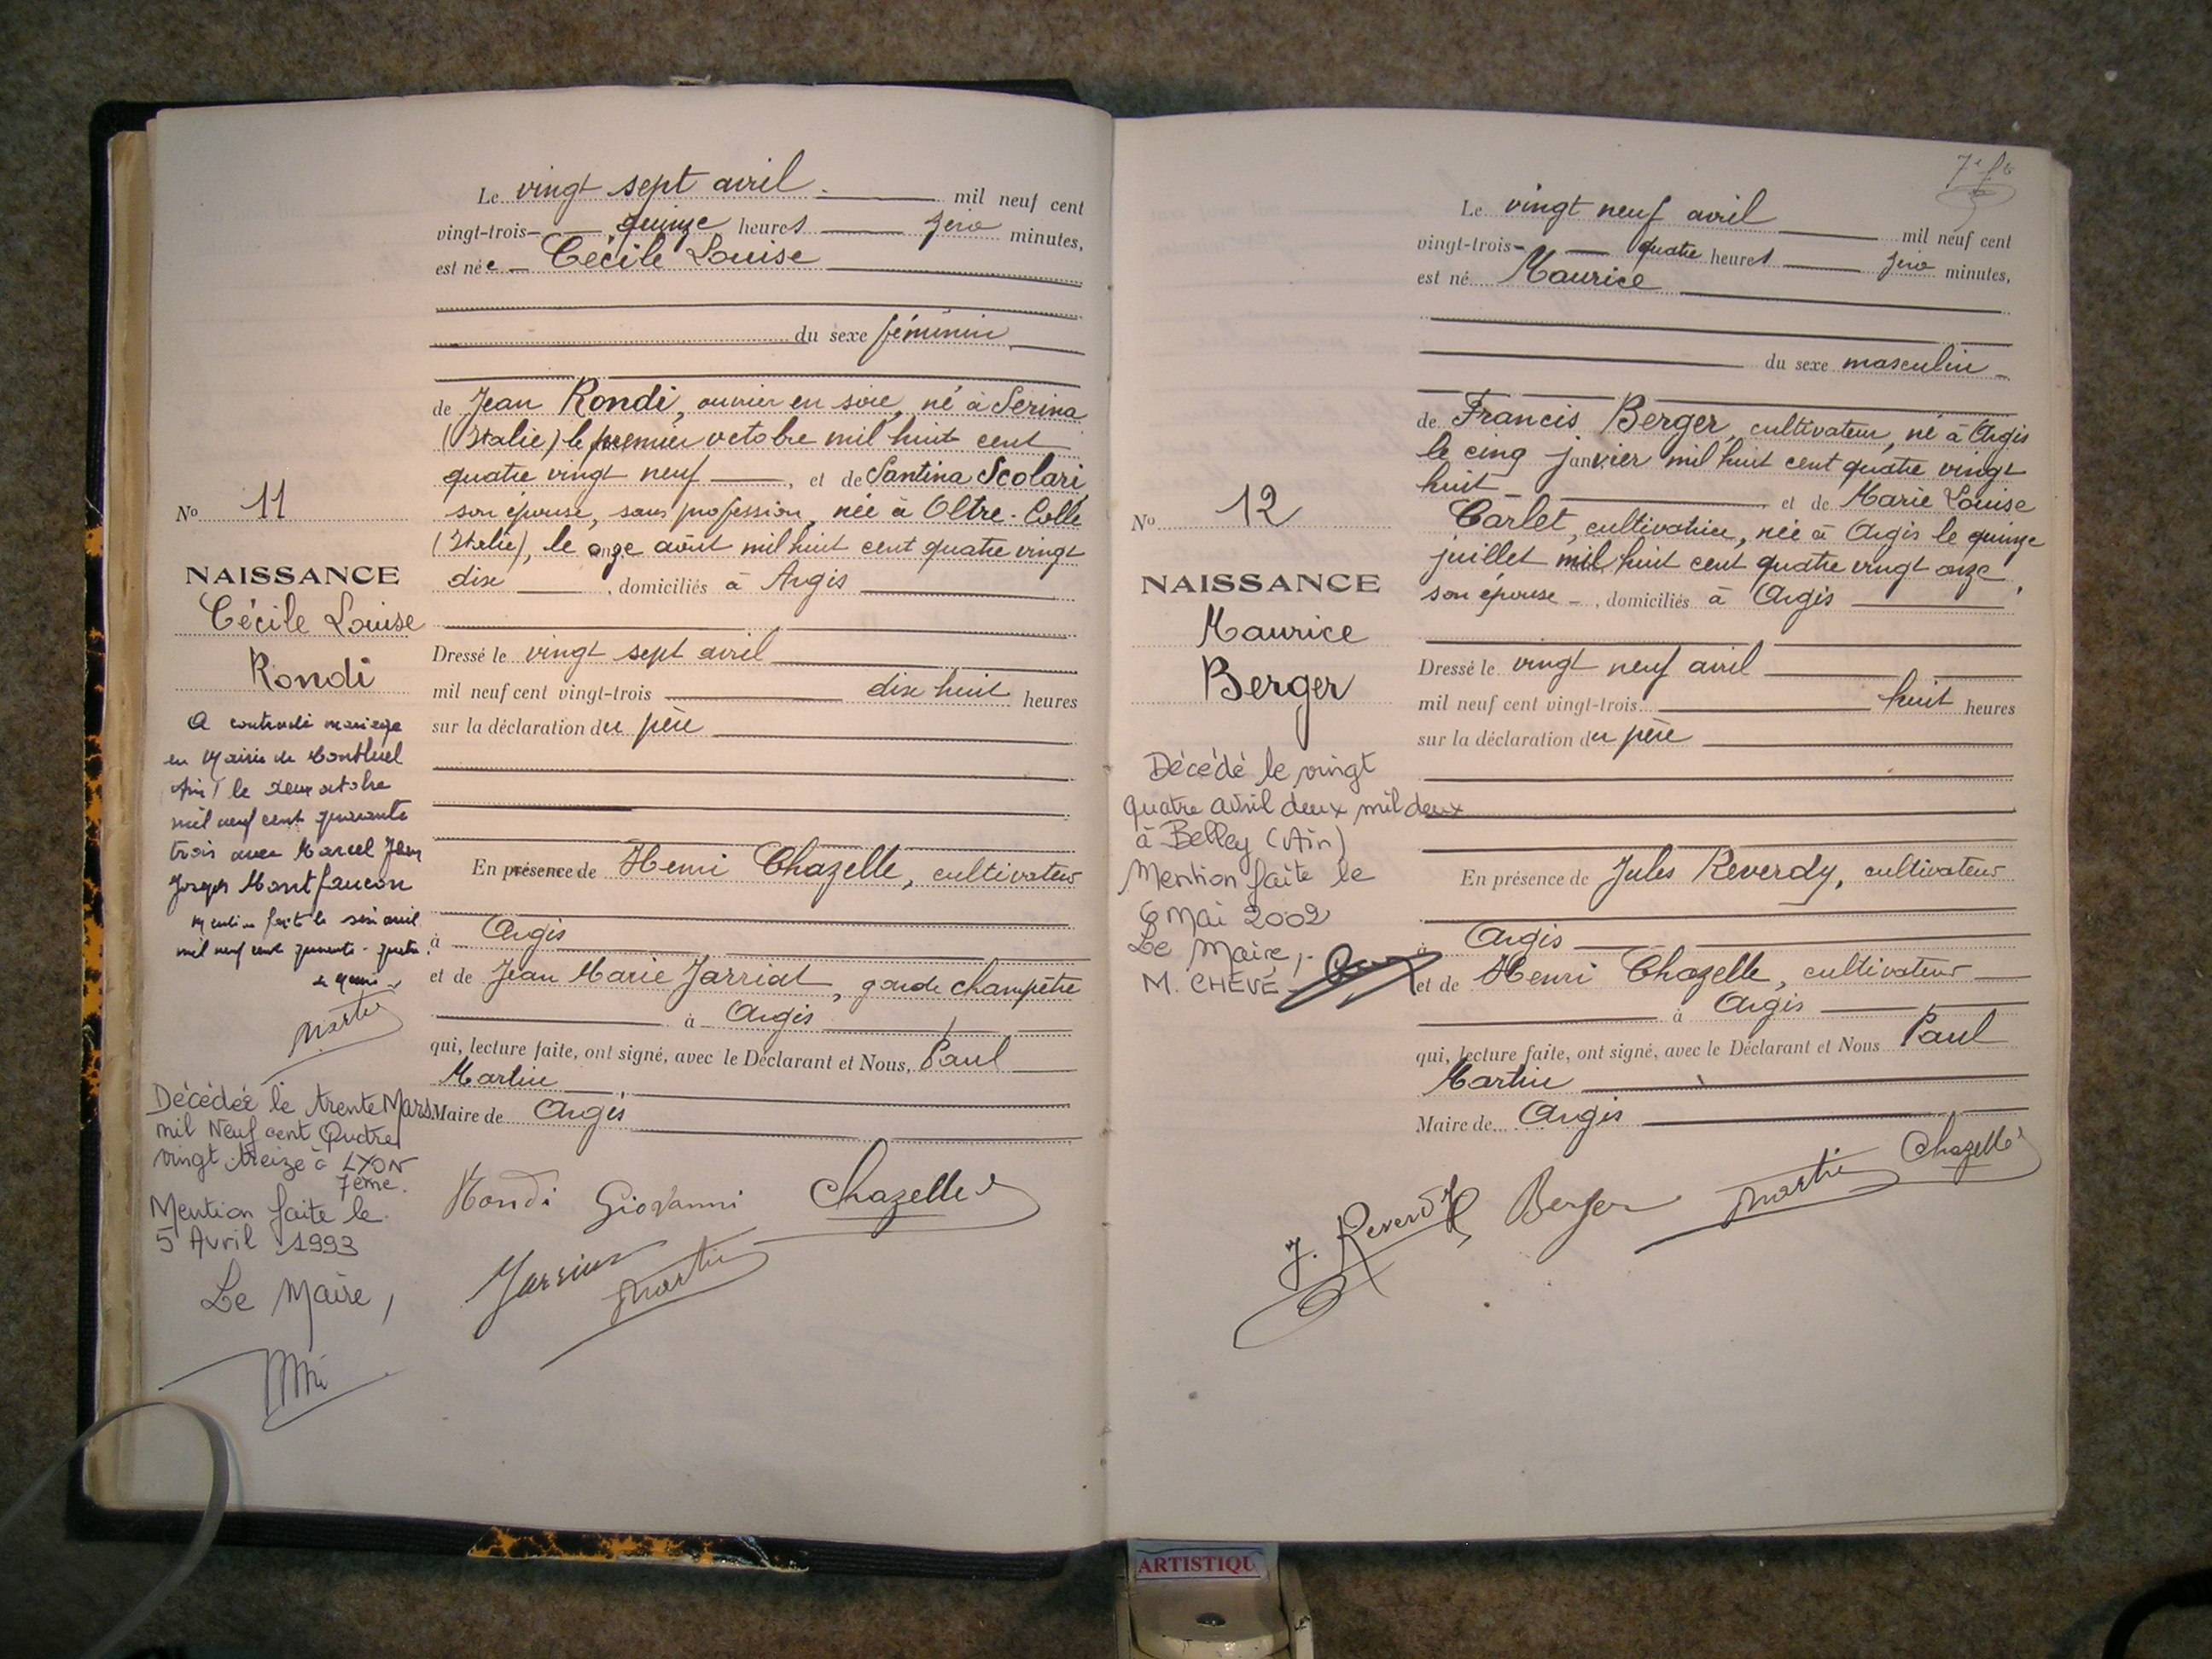 Le vingt sept avril mil neuf cent
vingt-trois quinze heures zéro minutes,
est née Cécile Louise
du sexe féminin
de Jean Rondi, ouvrier en soie, né à Serina
(Italie) le premier octobre mil huit cent
quatre vingt neuf, et de Santina Scolari
son épouse, sans profession, née à Oltre-Colle
(Italie), le onze août mil huit cent quatre vingt
dix, domiciliés à Argis
Dressé le vingt sept avril
mil neuf cent vingt-trois dix huit heures
sur la déclaration du père
En présence de Henri Chazelle, cultivateur
à Argis
et de Jean Marie Jarriat, garde champêtre
à Argis
qui, lecture faite, ont signé, avec le Déclarant et Nous, Paul
Martin
Maire de Argis
Rondi Giovanni Chazelle
Martin
No 11
NAISSANCE
Cécile Louise
Rondi
A contracté mariage
en Mairie de Montluel
Ain) le deux octobre
mil neuf cent quarante
trois avec Marcel Jean
Joseph Montfaucon
Mention faite le six avril
mil neuf cent quarante-quatre
Le Maire
Martin
Décédée le trente Mars
mil Neuf cent Quatre
vingt treize à LYON
7ème.
Mention faite le
5 Avril 1993
Le Maire,
7e ft
Le vingt neuf avril mil neuf cent
vingt-trois quatre heures zéro minutes,
est né Maurice
du sexe masculin
de Francis Berger, cultivateur, né à Argis
le cinq janvier mil huit cent quatre vingt
huit et de Marie Louise
Carlet, cultivatrice, née à Argis le quinze
juillet mil huit cent quatre vingt onze,
son épouse, domiciliés à Argis
Dressé le vingt neuf avril
mil neuf cent vingt-trois huit heures
sur la déclaration du père
En présence de Jules Reverdy, cultivateur
à Argis
et de Henri Chazelle, cultivateur
à Argis
qui, lecture faite, ont signé, avec le Déclarant et Nous Paul
Martin
Maire de Argis
J. Reverdy Berger Martin Chazelle
No 12
NAISSANCE
Maurice
Berger
Décédé le vingt
quatre avril deux mil deux
à Belley (Ain)
Mention faite le
6 Mai 2002
Le Maire,
M. CHEVÉ
ARTISTIQU